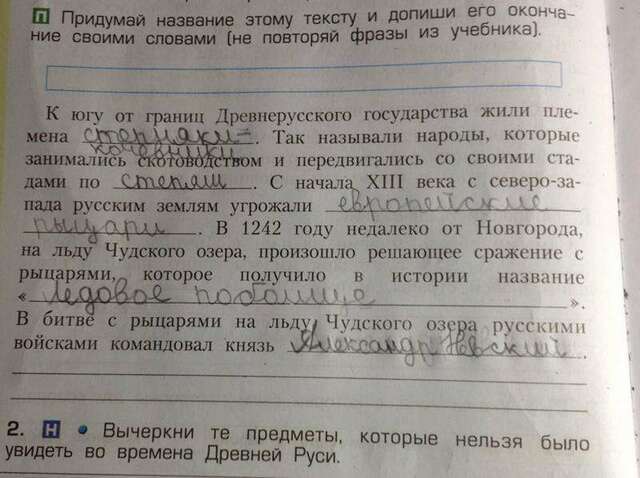 П Придумай название этому тексту и допиши его оконча-
ние своими словами (не повторяй фразы из учебника).
К югу от границ Древнерусского государства жили пле-
мена степняки- . Так называли народы, которые
кочевники
занимались скотоводством и передвигались со своими ста-
дами по степям . С начала XIII века с северо-за-
пада русским землям угрожали европейские
рыцари . В 1242 году недалеко от Новгорода,
на льду Чудского озера, произошло решающее сражение с
рыцарями, которое получило в истории название
« Ледовое побоище ».
В битве с рыцарями на льду Чудского озера русскими
войсками командовал князь Александр Невский .
2. Н • Вычеркни те предметы, которые нельзя было
увидеть во времена Древней Руси.